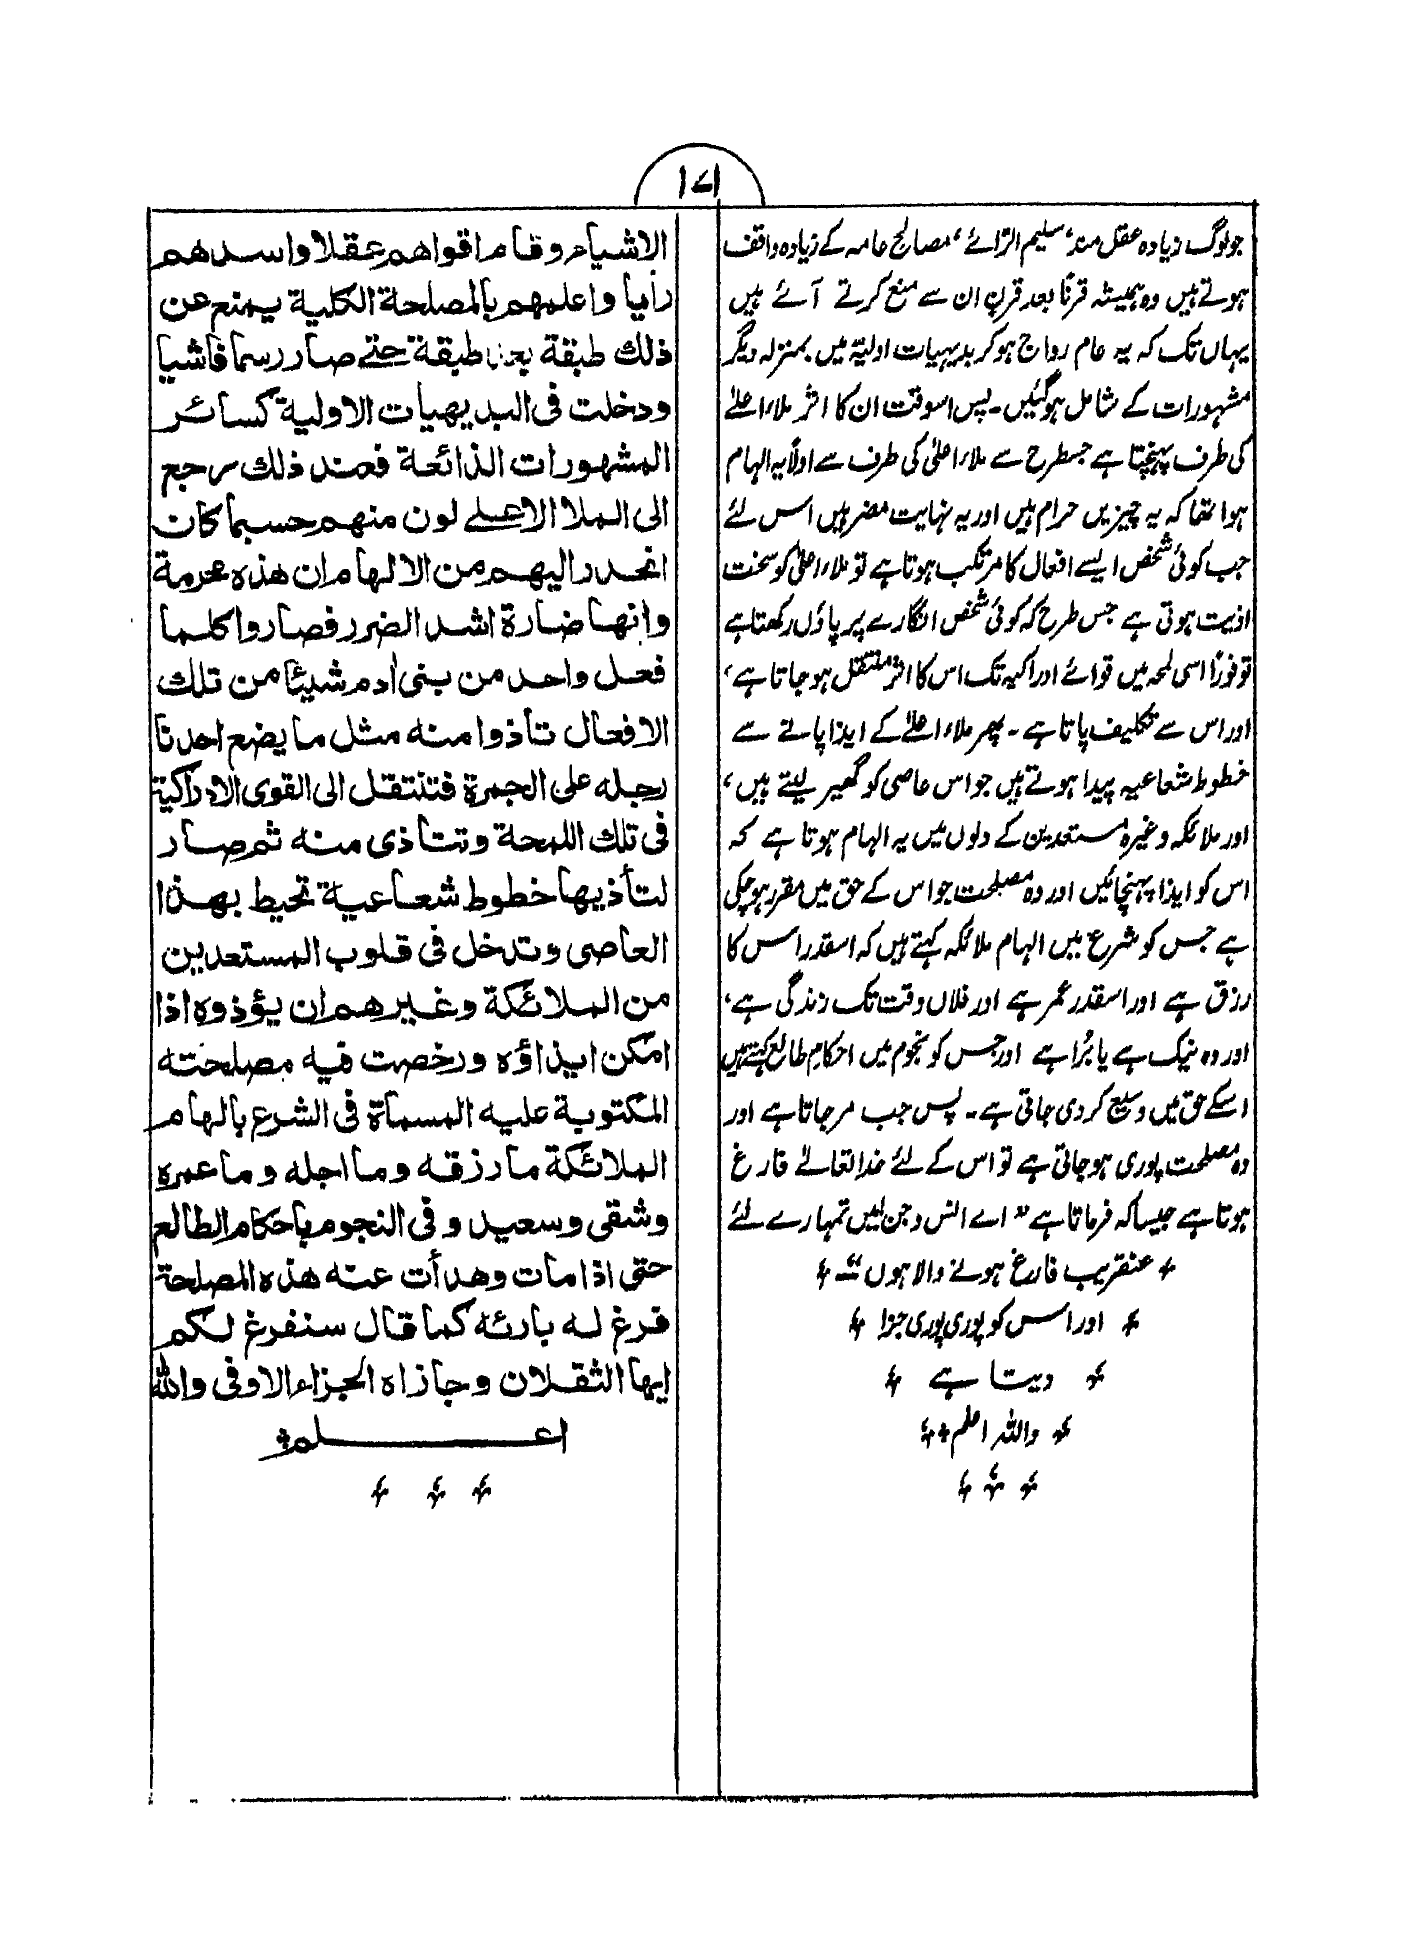 ١٧١
جو لوگ زیادہ عقل مند، سلیم الرّائے، مصالح عامہ کے زیادہ واقف
ہوتے ہیں وہ ہمیشہ قرنًا بعد قرن ان سے منع کرتے آئے ہیں
یہاں تک کہ یہ عام رواج ہو کر بدیہیات اولیۃ میں بمنزلہ دیگر
مشہورات کے شامل ہو گئیں۔ پس اسوقت ان کا اثر ملاء اعلےٰ
کی طرف پہنچتا ہے جسطرح سے ملاء اعلیٰ کی طرف سے اولًا یہ الہام
ہوا تھا کہ یہ چیزیں حرام ہیں اور یہ نہایت مضر ہیں اس لئے
جب کوئی شخص ایسے افعال کا مرتکب ہوتا ہے تو ملاء اعلیٰ کو سخت
اذیت ہوتی ہے جس طرح کہ کوئی شخص انگارے پر پاؤں رکھتا ہے
تو فورًا اسی لمحہ میں قوائے ادراکیہ تک اس کا اثر منتقل ہو جاتا ہے،
اور اس سے تکلیف پاتا ہے۔ پھر ملاء اعلےٰ کے ایذا پانے سے
خطوط شعاعیہ پیدا ہوتے ہیں جو اس عاصی کو گھیر لیتے ہیں،
اور ملائکہ وغیرہ مستعدین کے دلوں میں یہ الہام ہوتا ہے کہ
اس کو ایذا پہنچائیں اور وہ مصلحت جو اس کے حق میں مقرر ہو چکی
ہے جس کو شرع میں الہام ملائکہ کہتے ہیں کہ اسقدر اس کا
رزق ہے اور اسقدر عمر ہے اور فلاں وقت تک زندگی ہے،
اور وہ نیک ہے یا بُرا ہے اور جس کو نجوم میں احکام طالع کہتے ہیں
اسکے حق میں وسیع کر دی جاتی ہے۔ پس جب مر جاتا ہے اور
وہ مصلحت پوری ہو جاتی ہے تو اس کے لئے خدا تعالےٰ فارغ
ہوتا ہے جیسا کہ فرماتا ہے "اے انس و جن میں تمہارے لئے
عنقریب فارغ ہونے والا ہوں"
اور اس کو پوری پوری جزا
دیتا ہے
واللہ اعلم
الاشیاء وقام اقواهم عقلا واسدهم
رأیا واعلمهم بالمصلحة الکلیة یمنع عن
ذلك طبقة بعد طبقة حتے صار رسما فاشیا
ودخلت فی البدیهیات الاولیة کسائر
المشهورات الذائعة فعند ذلك یرجع
الی الملا الاعلے لون منهم حسبما کان
انحدر الیهم من الالهام ان هذه محرمة
وانها ضارة اشد الضرر فصاروا کلما
فعل واحد من بنی أدم شیئا من تلك
الافعال تأذوا منه مثل ما یضع احدنا
رجله علی الجمرة فتنتقل الی القوی الادراکیة
فی تلك اللمحة وتتأذی منه ثم صار
لتأذیها خطوط شعاعیة تحیط بهذا
العاصی وتدخل فی قلوب المستعدین
من الملائکة وغیرهم ان یؤذوه اذا
امکن ایذاؤه ورخصت فیه مصلحته
المکتوبة علیه المسماة فی الشرع بالهام
الملائکة ما رزقه وما اجله وما عمره
وشقی وسعید وفی النجوم باحکام الطالع
حتی اذا مات وهدأت عنه هذه المصلحة
فرغ له بارئه کما قال سنفرغ لکم
ایها الثقلان وجازاه الجزاء الاوفی والله
اعلم